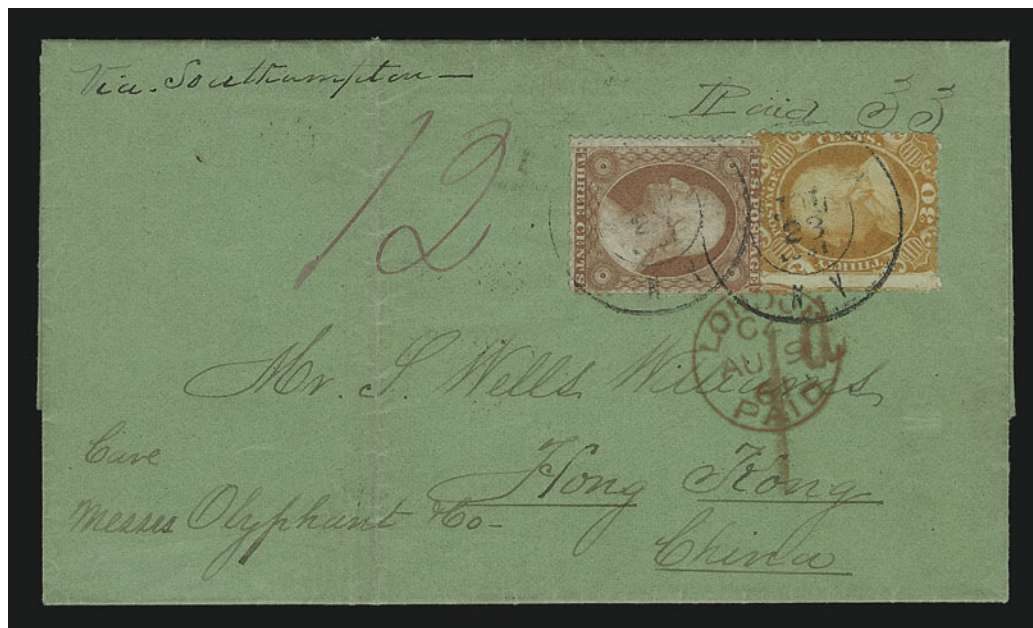 Via Southampton -
Paid 33
12
THREE CENTS
U.S. POSTAGE
CENTS.
30
THIRTY
POSTAGE
LONDON
AU 9
PAID
1d
Mr. S Wells Williams
Care
Messrs Olyphant & Co -
Hong Kong
China